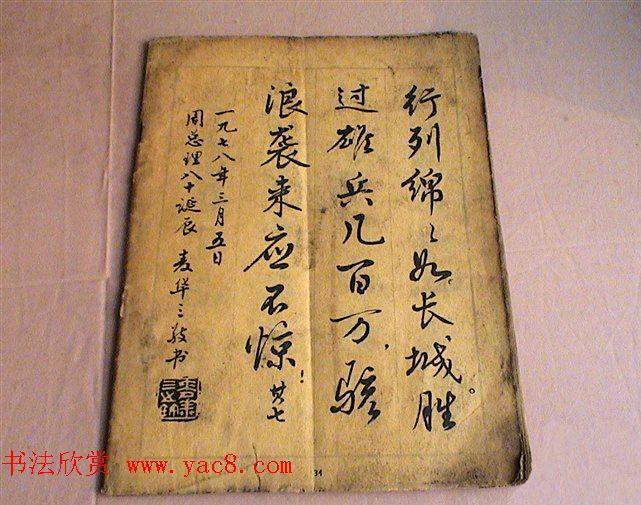 行列绵々如长城。胜
过雄兵几百万，骇
浪袭来应不惊！其七
一九七八年三月五日
周总理八十诞辰 麦华三敬书
34
书法欣赏 www.yac8.com